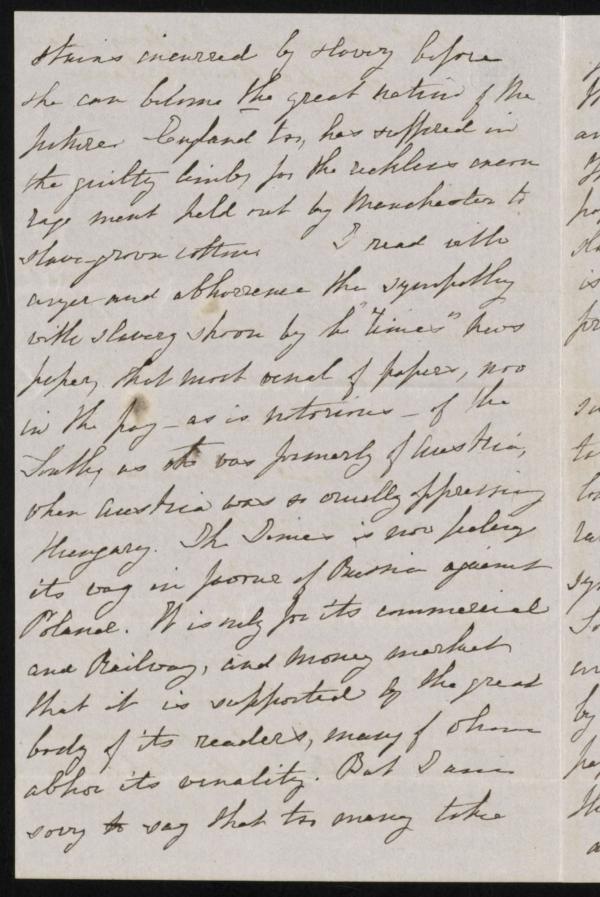 stains incurred by slavery before
she can become the great nation of the
future. England too, has suffered in
the guilty limb, for the reckless encou
rage ment held out by Manchester to
slave-grown cotton. I read with
anger and abhorrence the sympathy
with slavery shown by the "Times" news
paper, that most venal of papers, now
in the pay - as is notorious - of the
South, as it was formerly of Austria,
when Austria was so cruelly oppressing
Hungary. The Times is now feeling
its way in favour of Russia against
Poland. It is only for its commercial
and Railway, and Money market
that it is supported by the great
body of its readers, many of whom
abhor its venality. But I am
sorry to say that too many take